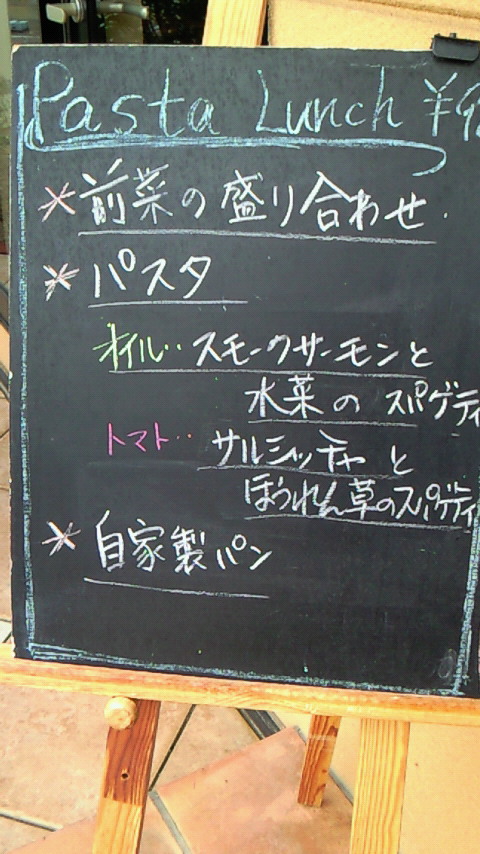 Pasta Lunch ¥9
*前菜の盛り合わせ.
*パスタ
オイル・・スモークサーモンと
水菜の スパゲティ
トマト・・ サルシッチャと
ほうれん草のスパゲティ
*自家製パン